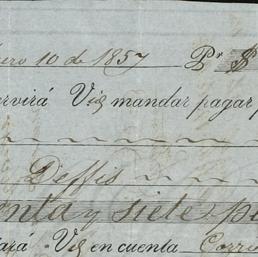 ero 10 de 1857 Pr $
ervirá Vs mandar pagar p
Deffis
enta y siete pe
ará Vs en cuenta Corri